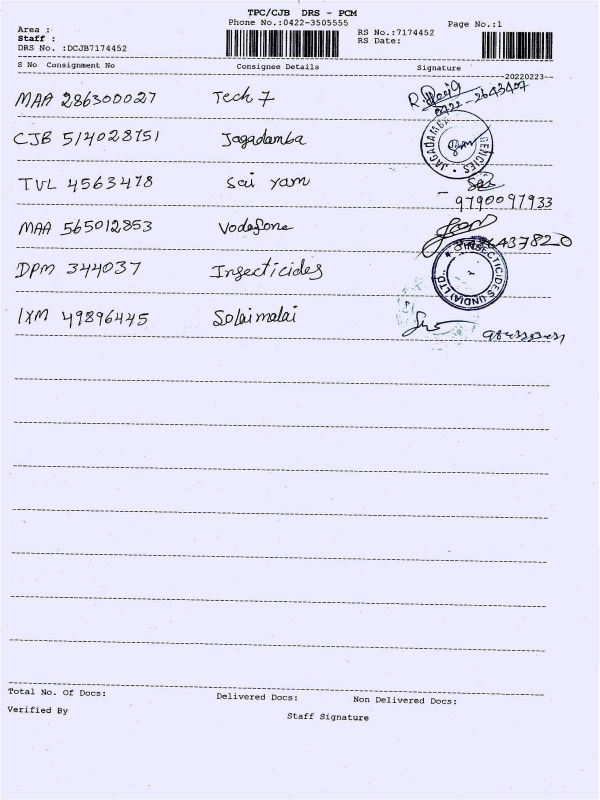 TPC/CJB DRS - PCM
Phone No.:0422-3505555
Page No.:1
Area :
Staff :
RS No.:7174452
DRS No. :DCJB7174452
RS Date:
S No Consignment No Consignee Details Signature
20220223
MAA 286300027 Tech 7
0422-2643407
CJB 514028751 Jagadamba
JAGADAMBA AGENCIES
TVL 4563478 Sai ram
9790097933
MAA 565012853 Vodafone
DPM 344037 Insecticides
INSECTICIDES (INDIA) LTD.
IXM 49896445 Solaimalai
Total No. Of Docs: Delivered Docs: Non Delivered Docs:
Verified By Staff Signature